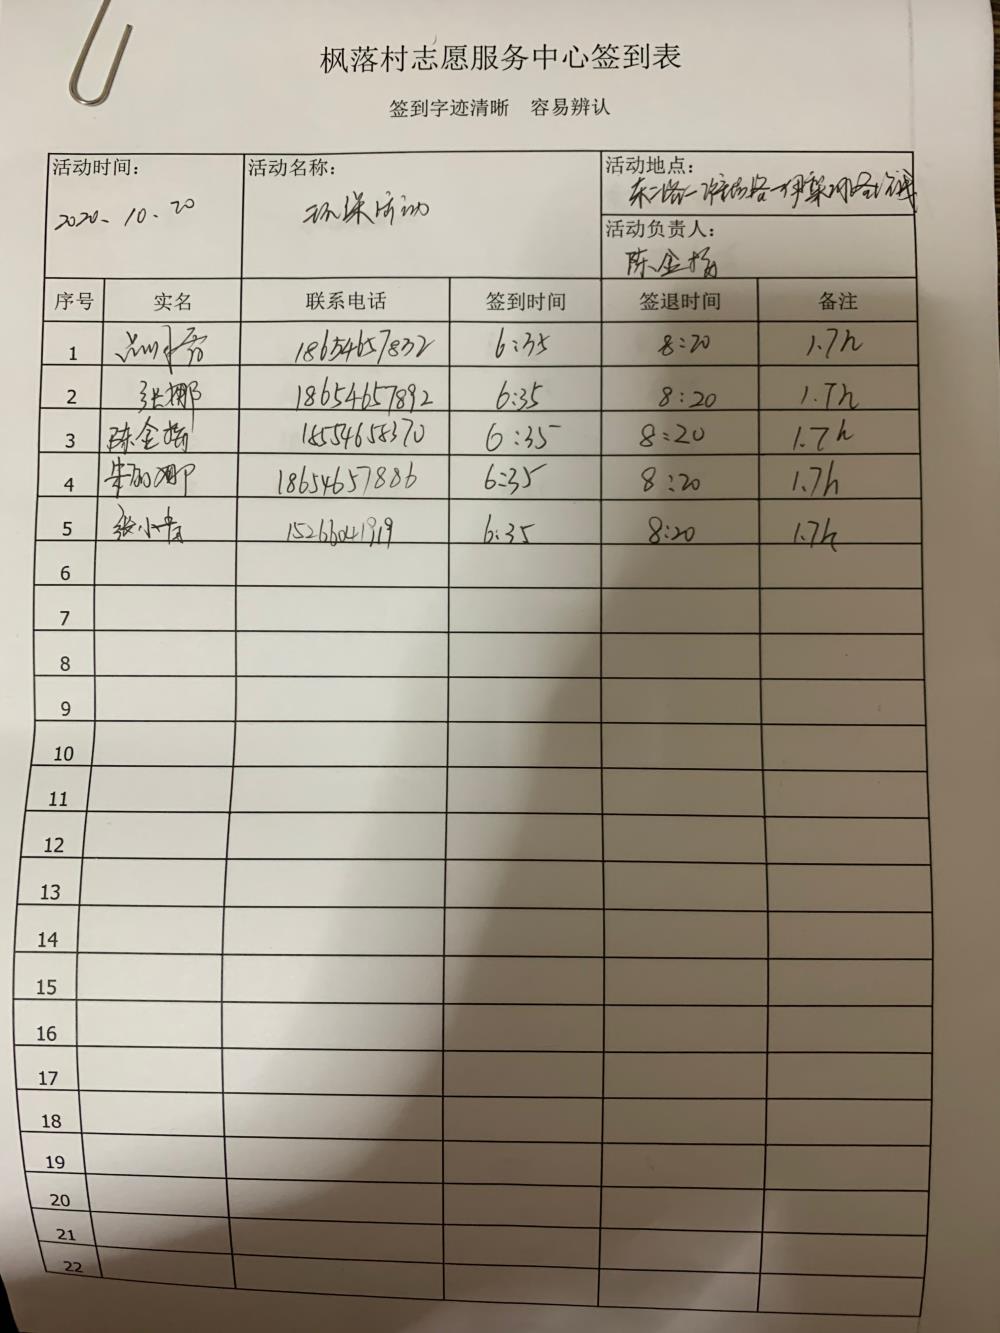 枫落村志愿服务中心签到表
签到字迹清晰 容易辨认
活动时间： 活动名称： 活动地点：
2020、10、20 环保活动
活动负责人：
陈金
序号 实名 联系电话 签到时间 签退时间 备注
1 18654657832 6:35 8:20 1.7h
2 张娜 18654657892 6:35 8:20 1.7h
3 陈金 18554658370 6:35 8:20 1.7h
4 18654657886 6:35 8:20 1.7h
5 张小青 15266041919 6:35 8:20 1.7h
6
7
8
9
10
11
12
13
14
15
16
17
18
19
20
21
22